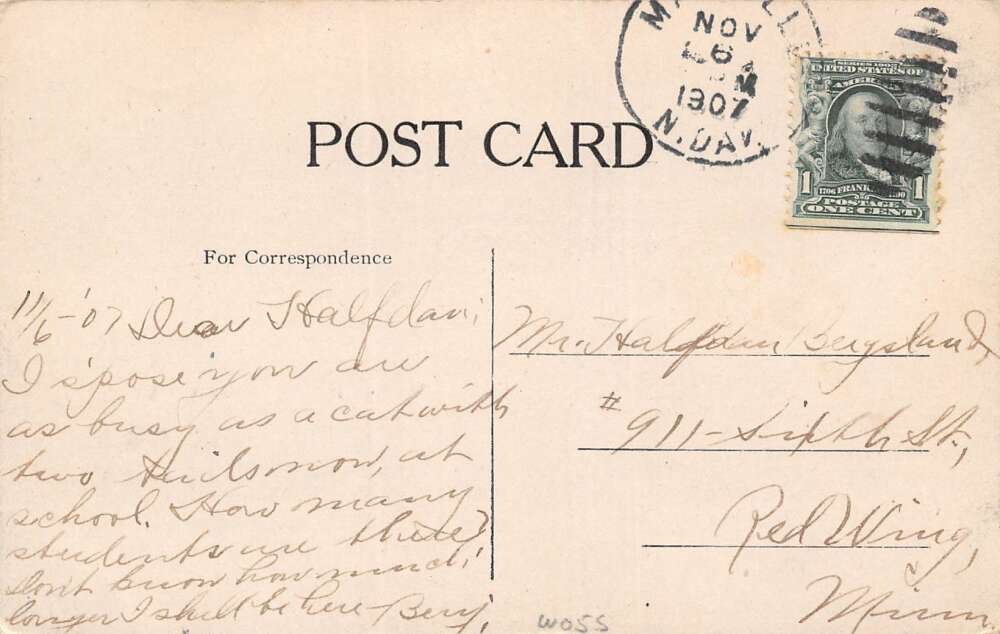 NOV
6
M
1907
N. DAK.
SERIES 1902
UNITED STATES OF
AMERICA
1 FRANKLIN 1
POSTAGE
ONE CENT
POST CARD
For Correspondence
11/6-'07 Dear Halfdan;
I s'pose you are
as busy as a cat with
two tails now, at
school. How many
students are there?
Don't know how much
longer I shall be here - Benj.
Mr. Halfdan Bergsland,
# 911- Sixth St.,
Red Wing,
Minn.
W055